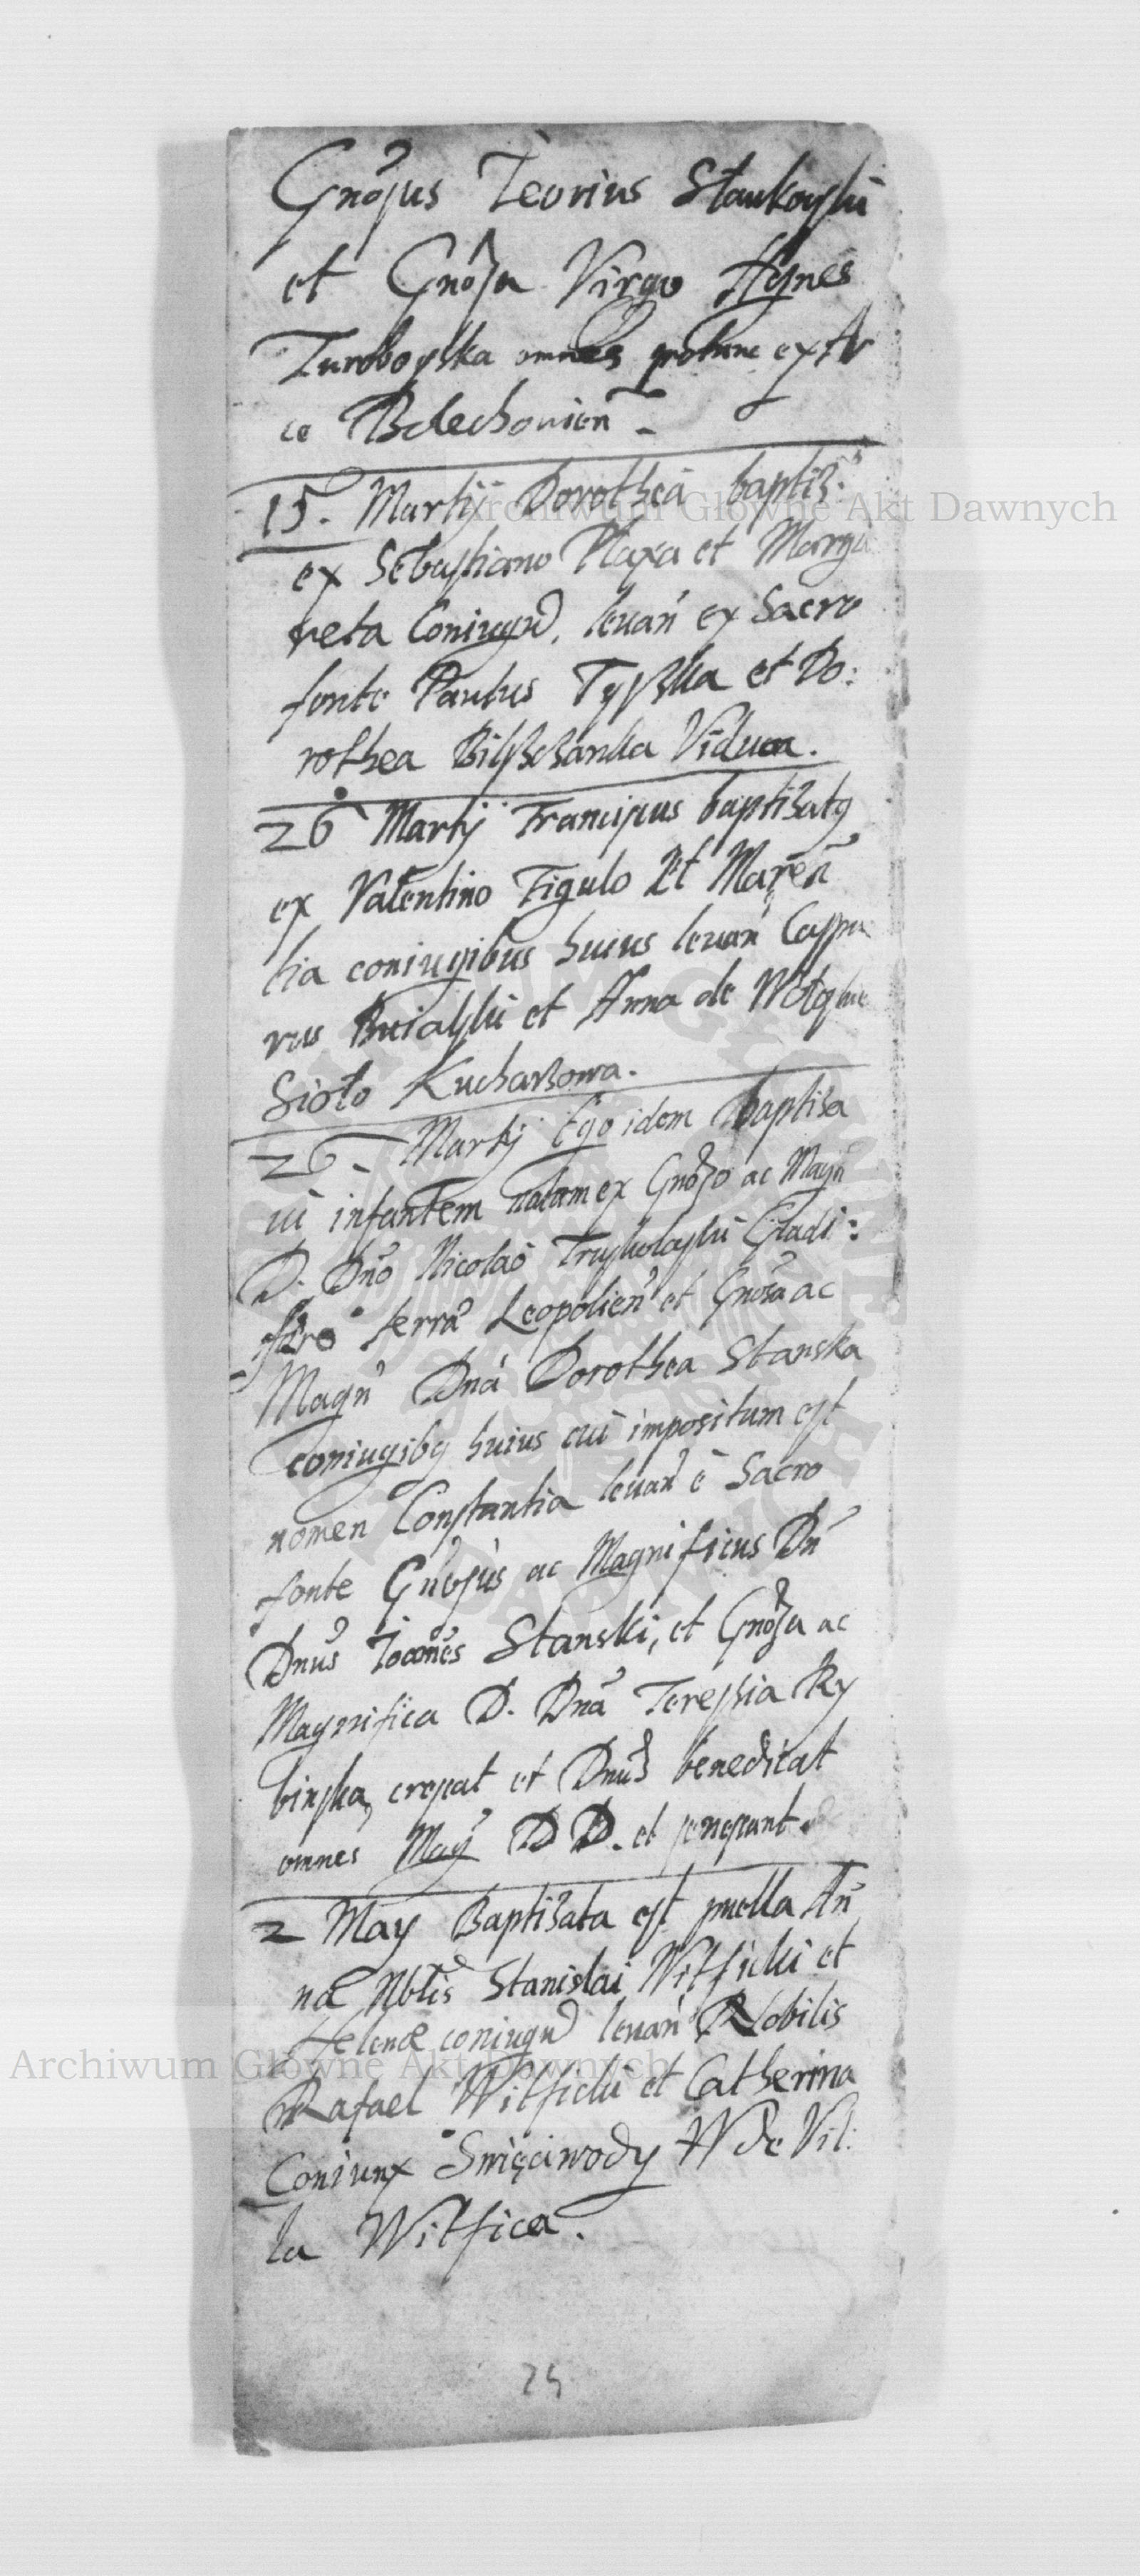 Gnōsus Teorius Stankoyski
et Gnōsa Virgo Agnes
Turoboyska omnes protunc ex Ar
ce Belechovien̄ -
15. Martij Dorothea baptiz:
ex Sebastiano Plaxa et Marga
reta Coniugū. levan̄ ex Sacro
fonte Paulus Tyszka et Do:
rothea Bilszczanka Vidua.
26 Martij Franciscus baptizatꝰ
ex Valentino Figulo Et Maren̄
tia coniugibus huius levan̄ Caspa
rus Buialski et Anna de
Sioło Kucharzowa.
26 - Martij Ego idem baptiza
ui infantem natam ex Gnōso ac Magn̄
D. Dn̄o Nicolao Truskolaski Gladi:
fero terrӕ Leopolien̄ et Gnōsa ac
Magn̄ Dnā Dorothea Stanska
coniugibꝰ huius cui impositum est
nomen Constantia levan̄ è Sacro
fonte Gnōsus ac Magnificus Dn̄
Dnūs Joānes Stanski, et Gnōsa ac
Magnifica D. Dnā Teressia Ry
binska, crescat et Dnūs benedicat
omnes Mag̃ D D. et senescant.
2 May Baptizata est puella An̄
na Nblīs Stanislai Witficki et
Helenæ coniugū levan̄ Nobilis
Rafael Witficki et Catherina
Coniunx Swięciwody W de Vil:
la Witfica.
25
Archiwum Główne Akt Dawnych
Archiwum Główne Akt Dawnych